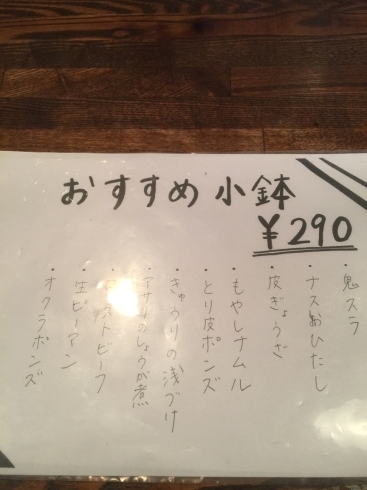 おすすめ小鉢
¥290
・鬼スラ
・ナスおひたし
・皮ぎょうざ
・もやしナムル
・とり皮ポンズ
・きゅうりの浅づけ
・アサリのしょうが煮
ストビーフ
・生ピーマン
・オクラポンズ